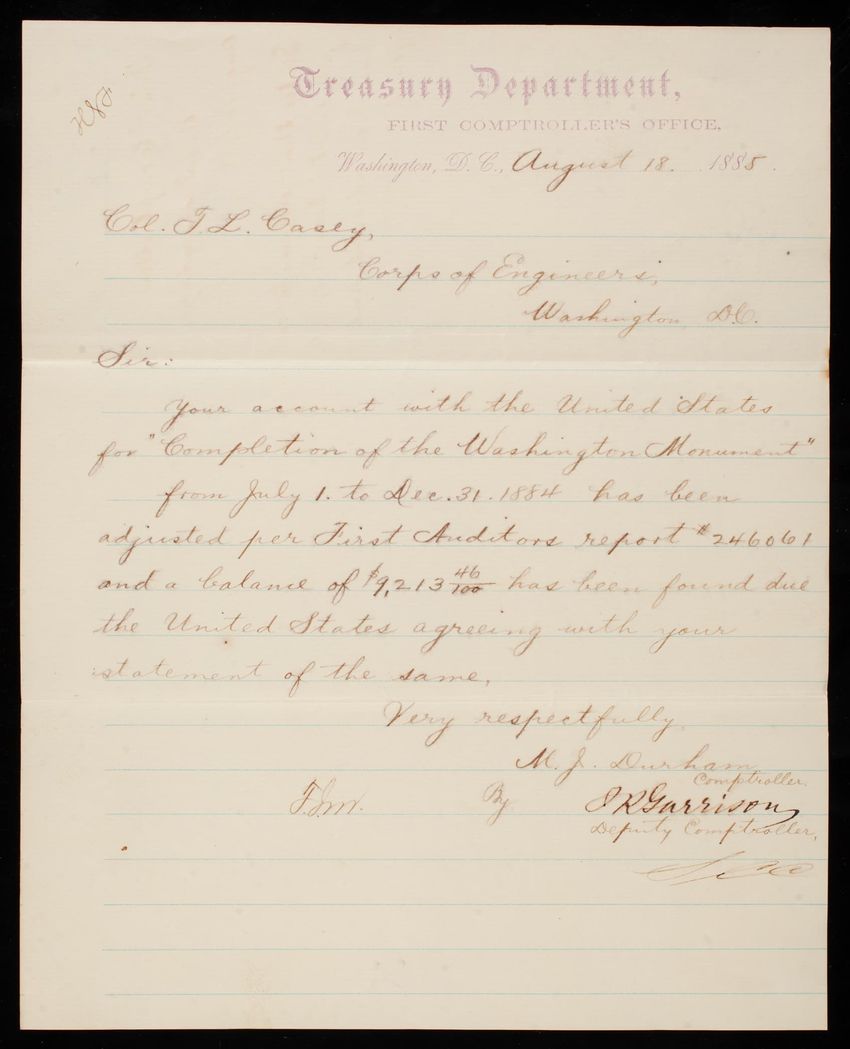 Treasury Department,
FIRST COMPTROLLER'S OFFICE,
Washington, D. C., August 18. 1885.
Col. T. L. Casey,
Corps of Engineers,
Washington D.C.
Sir:
Your account with the United States
for "Completion of the Washington Monument"
from July 1. to Dec. 31. 1884 has been
adjusted per First Auditors report #246061
and a balance of $9,213 46/100 has been found due
the United States agreeing with your
statement of the same.
Very respectfully,
M. J. Durham
Comptroller.
By J R Garrison
Deputy Comptroller.